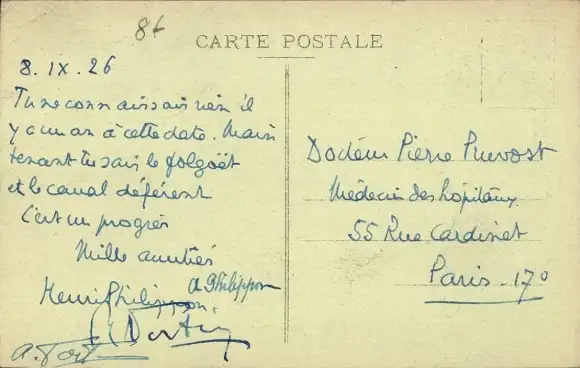 86
CARTE POSTALE
8.IX.26
Tu ne connaissais rien il
y a un an à cette date. Main
tenant tu sais le folgoët
et le canal déférent
C'est un progrès
Mille amitiés
A Philippon
Henri Philippon
Docteur Pierre Prevost
Médecin des hôpitaux
55 Rue Cardinet
Paris - 17°